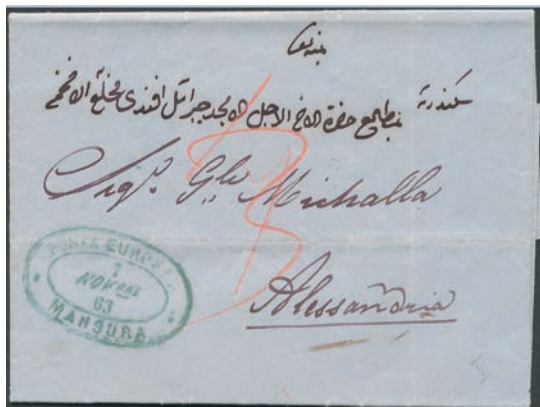 سكندرية بمطالع حضرة الاخ الاجل الامجد جبرائيل افندى مخلع الافخم
Sigr. Gle Michalla
Alessandria
POSTA EUROPEA
7
NOVBRE
63
MANSURA
3